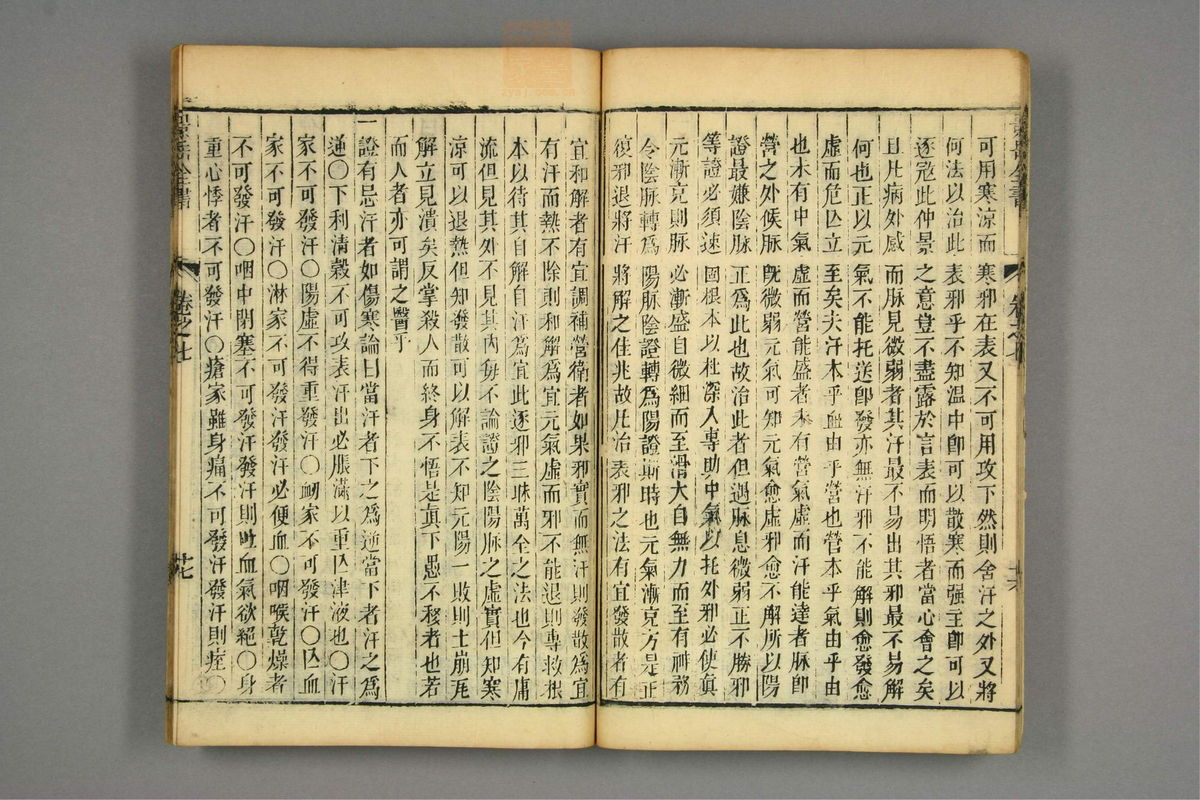 可用寒涼而寒邪在表又不可用攻下然則舍汗之外又將
何法以治此表邪乎不知溫中卽可以散寒而强主卽可以
逐寇此仲景之意豈不盡露於言表而明悟者當心會之矣
且凡病外感而脉見微弱者其汗最不易出其邪最不易解
何也正以元氣不能托送卽發亦無汗邪不能解則愈發愈
虛而危亾立至矣夫汗本乎血由乎營也營本乎氣由乎中
也未有中氣虛而營能盛者未有營氣虛而汗能達者脉卽
營之外候脉旣微弱元氣可知元氣愈虛邪愈不解所以陽
證最嫌陰脉正爲此也故治此者但遇脉息微弱正不勝邪
等證必須速固根本以杜深入專助中氣以托外邪必使眞
元漸充則脉必漸盛自微細而至滑大自無力而至有神務
令陰脉轉爲陽脉陰證轉爲陽證斯時也元氣漸充方是正
復邪退將汗將解之佳兆故凡治表邪之法有宜發散者有
宜和解者有宜調補營衛者如果邪實而無汗則發散爲宜
有汗而熱不除則和解爲宜元氣虛而邪不能退則專救根
本以待其自解自汗爲宜此逐邪三昧萬全之法也今有庸
流但見其外不見其內每不論證之陰陽脉之虛實但知寒
涼可以退熱但知發散可以解表不知元陽一敗則土崩瓦
解立見潰矣反掌殺人而終身不悟是眞下愚不移者也若
而人者亦可謂之醫乎
一證有忌汗者如傷寒論曰當汗者下之爲逆當下者汗之爲
逆○下利清穀不可攻表汗出必脹滿以重亾津液也○汗
家不可發汗○陽虛不得重發汗○衂家不可發汗○亾血
家不可發汗○淋家不可發汗發汗必便血○咽喉乾燥者
不可發汗○咽中閉塞不可發汗發汗則吐血氣欲絕○身
重心悸者不可發汗○瘡家雖身痛不可發汗發汗則痓○
景岳全書
卷之七